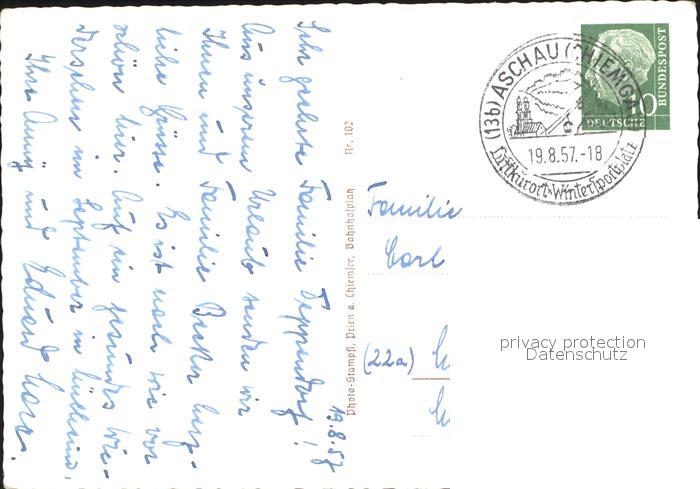 19.8.57
Sehr geehrte Familie Deppendorf!
Aus unserem Urlaub senden wir
Ihnen und Familie Becker herz-
liche Grüsse. Es ist nach wie vor
schön hier. Auf ein gesundes Wie-
dersehen im September in Mülheim,
Ihre Änny und Eduard
Photo-Stampfl, Prien a. Chiemsee, Bahnhofplatz Nr. 102
(13b) ASCHAU (CHIEMGAU)
19.8.57.-18
Luftkurort-Wintersportplatz
10
DEUTSCHE
BUNDESPOST
Familie
Carl
(22a)
privacy protection
Datenschutz